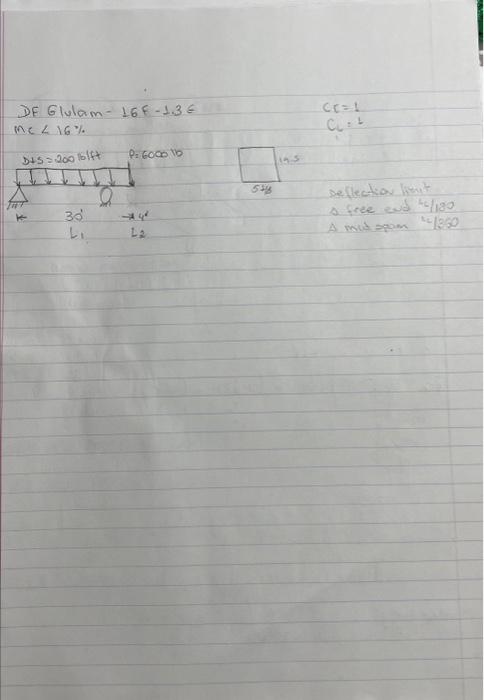 DF Glulam - 16F-1.3E
MC < 16%
D+S = 200 lb/ft P=6000 lb
30' 4'
L1 L2
19.5
5 1/8
Ct=1
CL=1
Deflection limit
Δ free end L/180
Δ mid span L/360